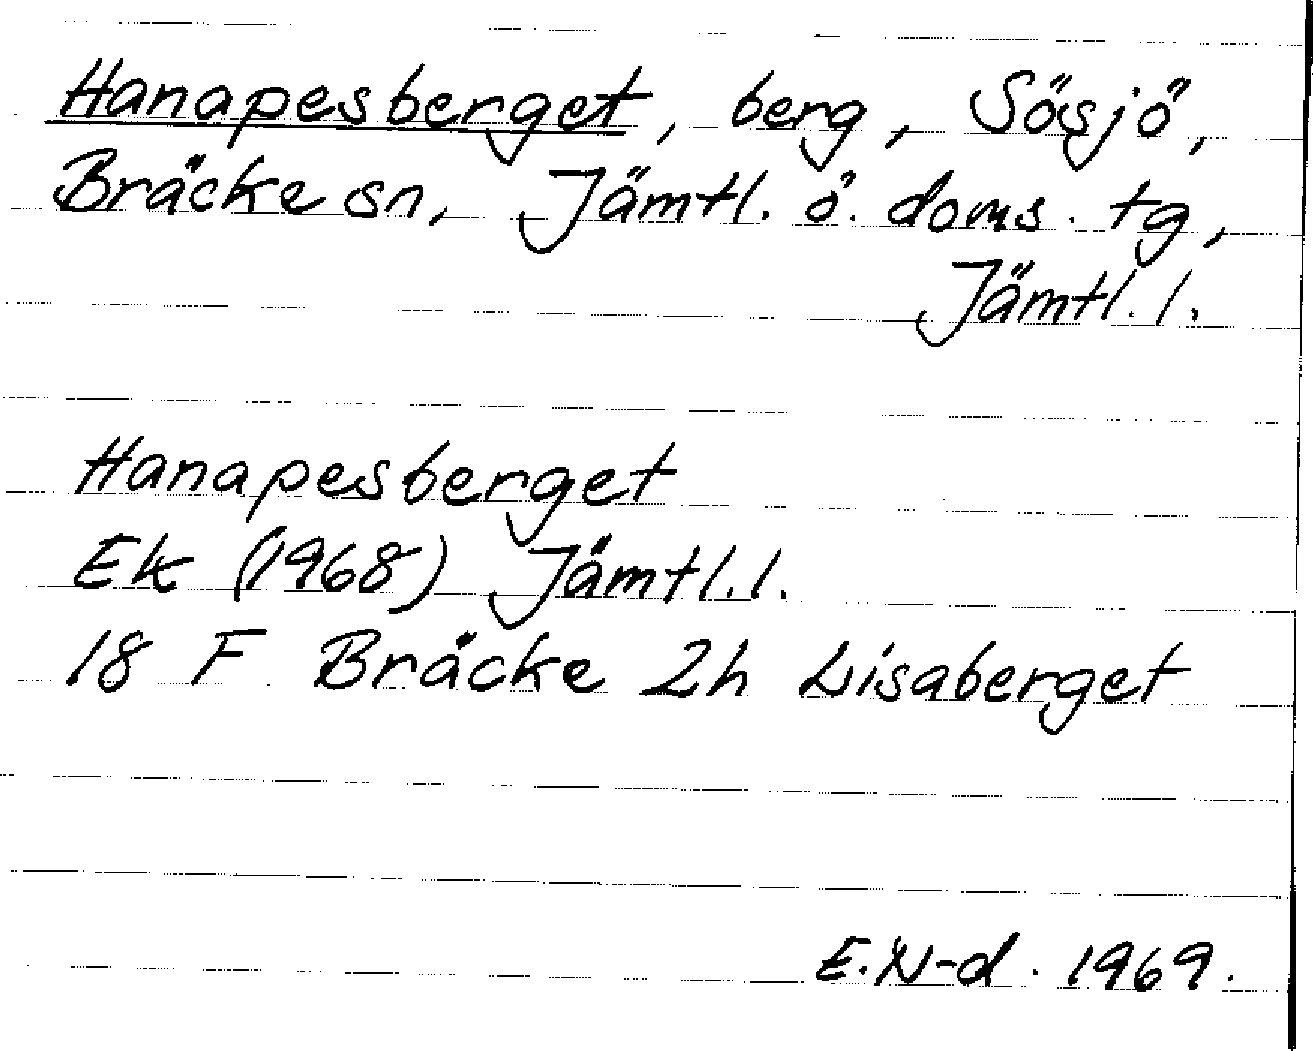 Hanapesberget, berg, Sösjö,
Bräcke sn, Jämtl. ö. doms. tg,
Jämtl. l.
Hanapesberget
Ek (1968) Jämtl. l.
18 F Bräcke 2h Lisaberget
E. N-d. 1969.